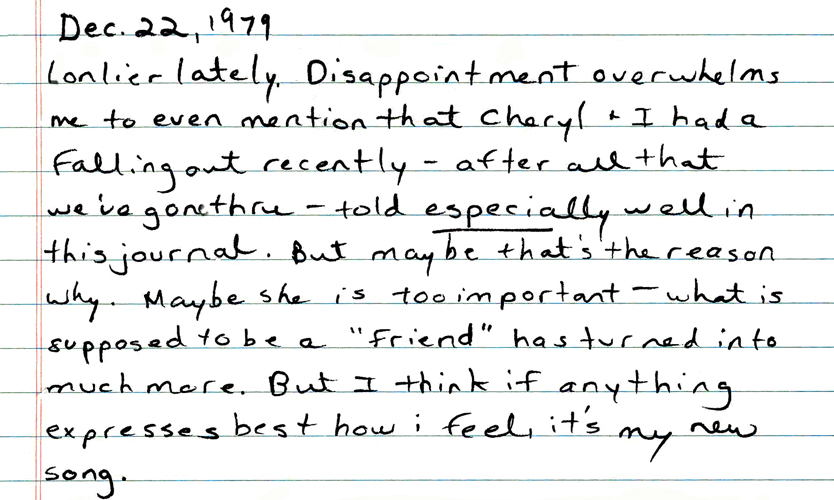 Dec. 22, 1979
Lonlier lately. Disappointment overwhelms
me to even mention that Cheryl + I had a
Falling out recently - after all that
we've gone thru - told especially well in
this journal. But maybe that's the reason
why. Maybe she is too important - what is
supposed to be a "friend" has turned into
much more. But I think if anything
expresses best how i feel, it's my new
song.